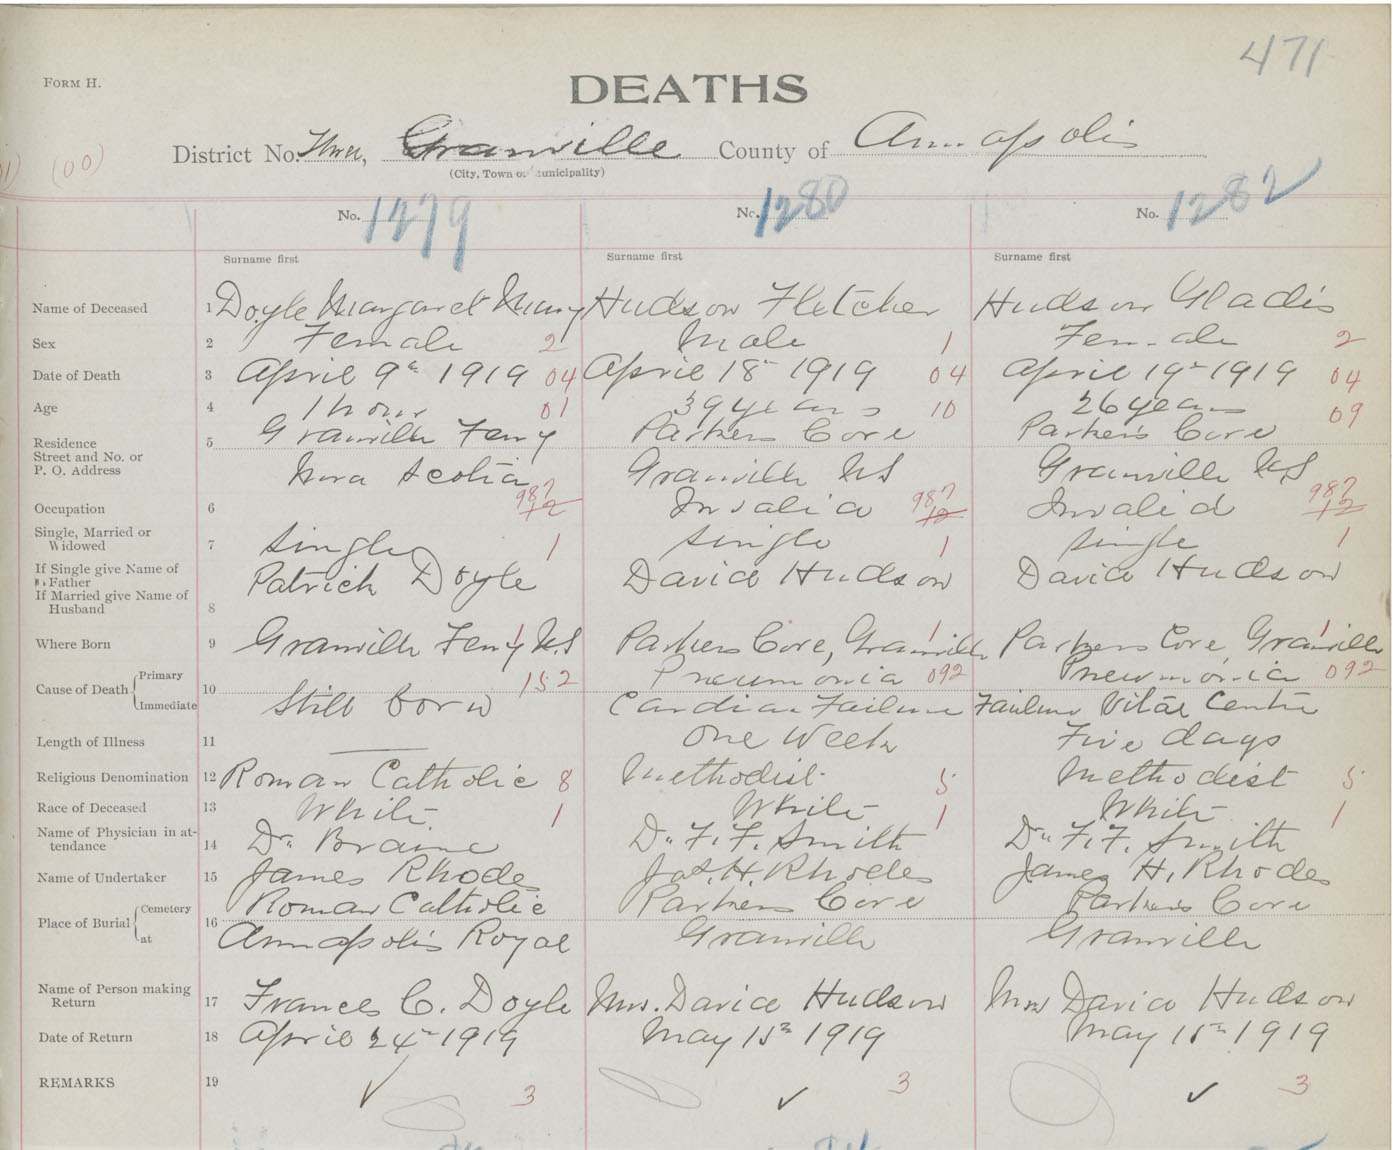 471
FORM H.
DEATHS
District No. Three, Granville County of Annapolis
(City, Town or Municipality)
(00)
No. 1279 No. 1280 No. 1282
Surname first Surname first Surname first
Name of Deceased 1 Doyle Margaret Mary Hudson Fletcher Hudson Gladis
Sex 2 Female 2 Male 1 Female 2
Date of Death 3 April 9th 1919 04 April 18th 1919 04 April 19th 1919 04
Age 4 1 hour 01 39 years 10 26 years 09
Residence 5 Granville Ferry Parkers Cove Parker's Cove
Street and No. or
P. O. Address Nova Scotia Granville NS Granville NS
987 987 987
Occupation 6 12 Invalid 12 Invalid 12
Single, Married or
Widowed 7 Single 1 Single 1 Single 1
If Single give Name of
Father Patrick Doyle David Hudson David Hudson
If Married give Name of
Husband 8
Where Born 9 Granville Ferry N.S 1 Parkers Cove, Granville 1 Parkers Cove Granville 1
Cause of Death Primary 152 Pneumonia 092 Pneumonia 092
10
Immediate Still born Cardiac Failure Failure Vital Centre
Length of Illness 11 One Week Five days
Religious Denomination 12 Roman Catholic 8 Methodist 5 Methodist 5
Race of Deceased 13 White 1 White 1 White 1
Name of Physician in at-
tendance 14 Dr. Braine Dr. F. F. Smith Dr. F. F. Smith
Name of Undertaker 15 James Rhodes Jas. H. Rhodes James H. Rhodes
Place of Burial Cemetery Roman Catholic Parkers Cove Parkers Cove
16
at Annapolis Royal Granville Granville
Name of Person making
Return 17 Frances C. Doyle Mrs. David Hudson Mrs David Hudson
Date of Return 18 April 24th 1919 May 15th 1919 May 15th 1919
REMARKS 19 3 3 3